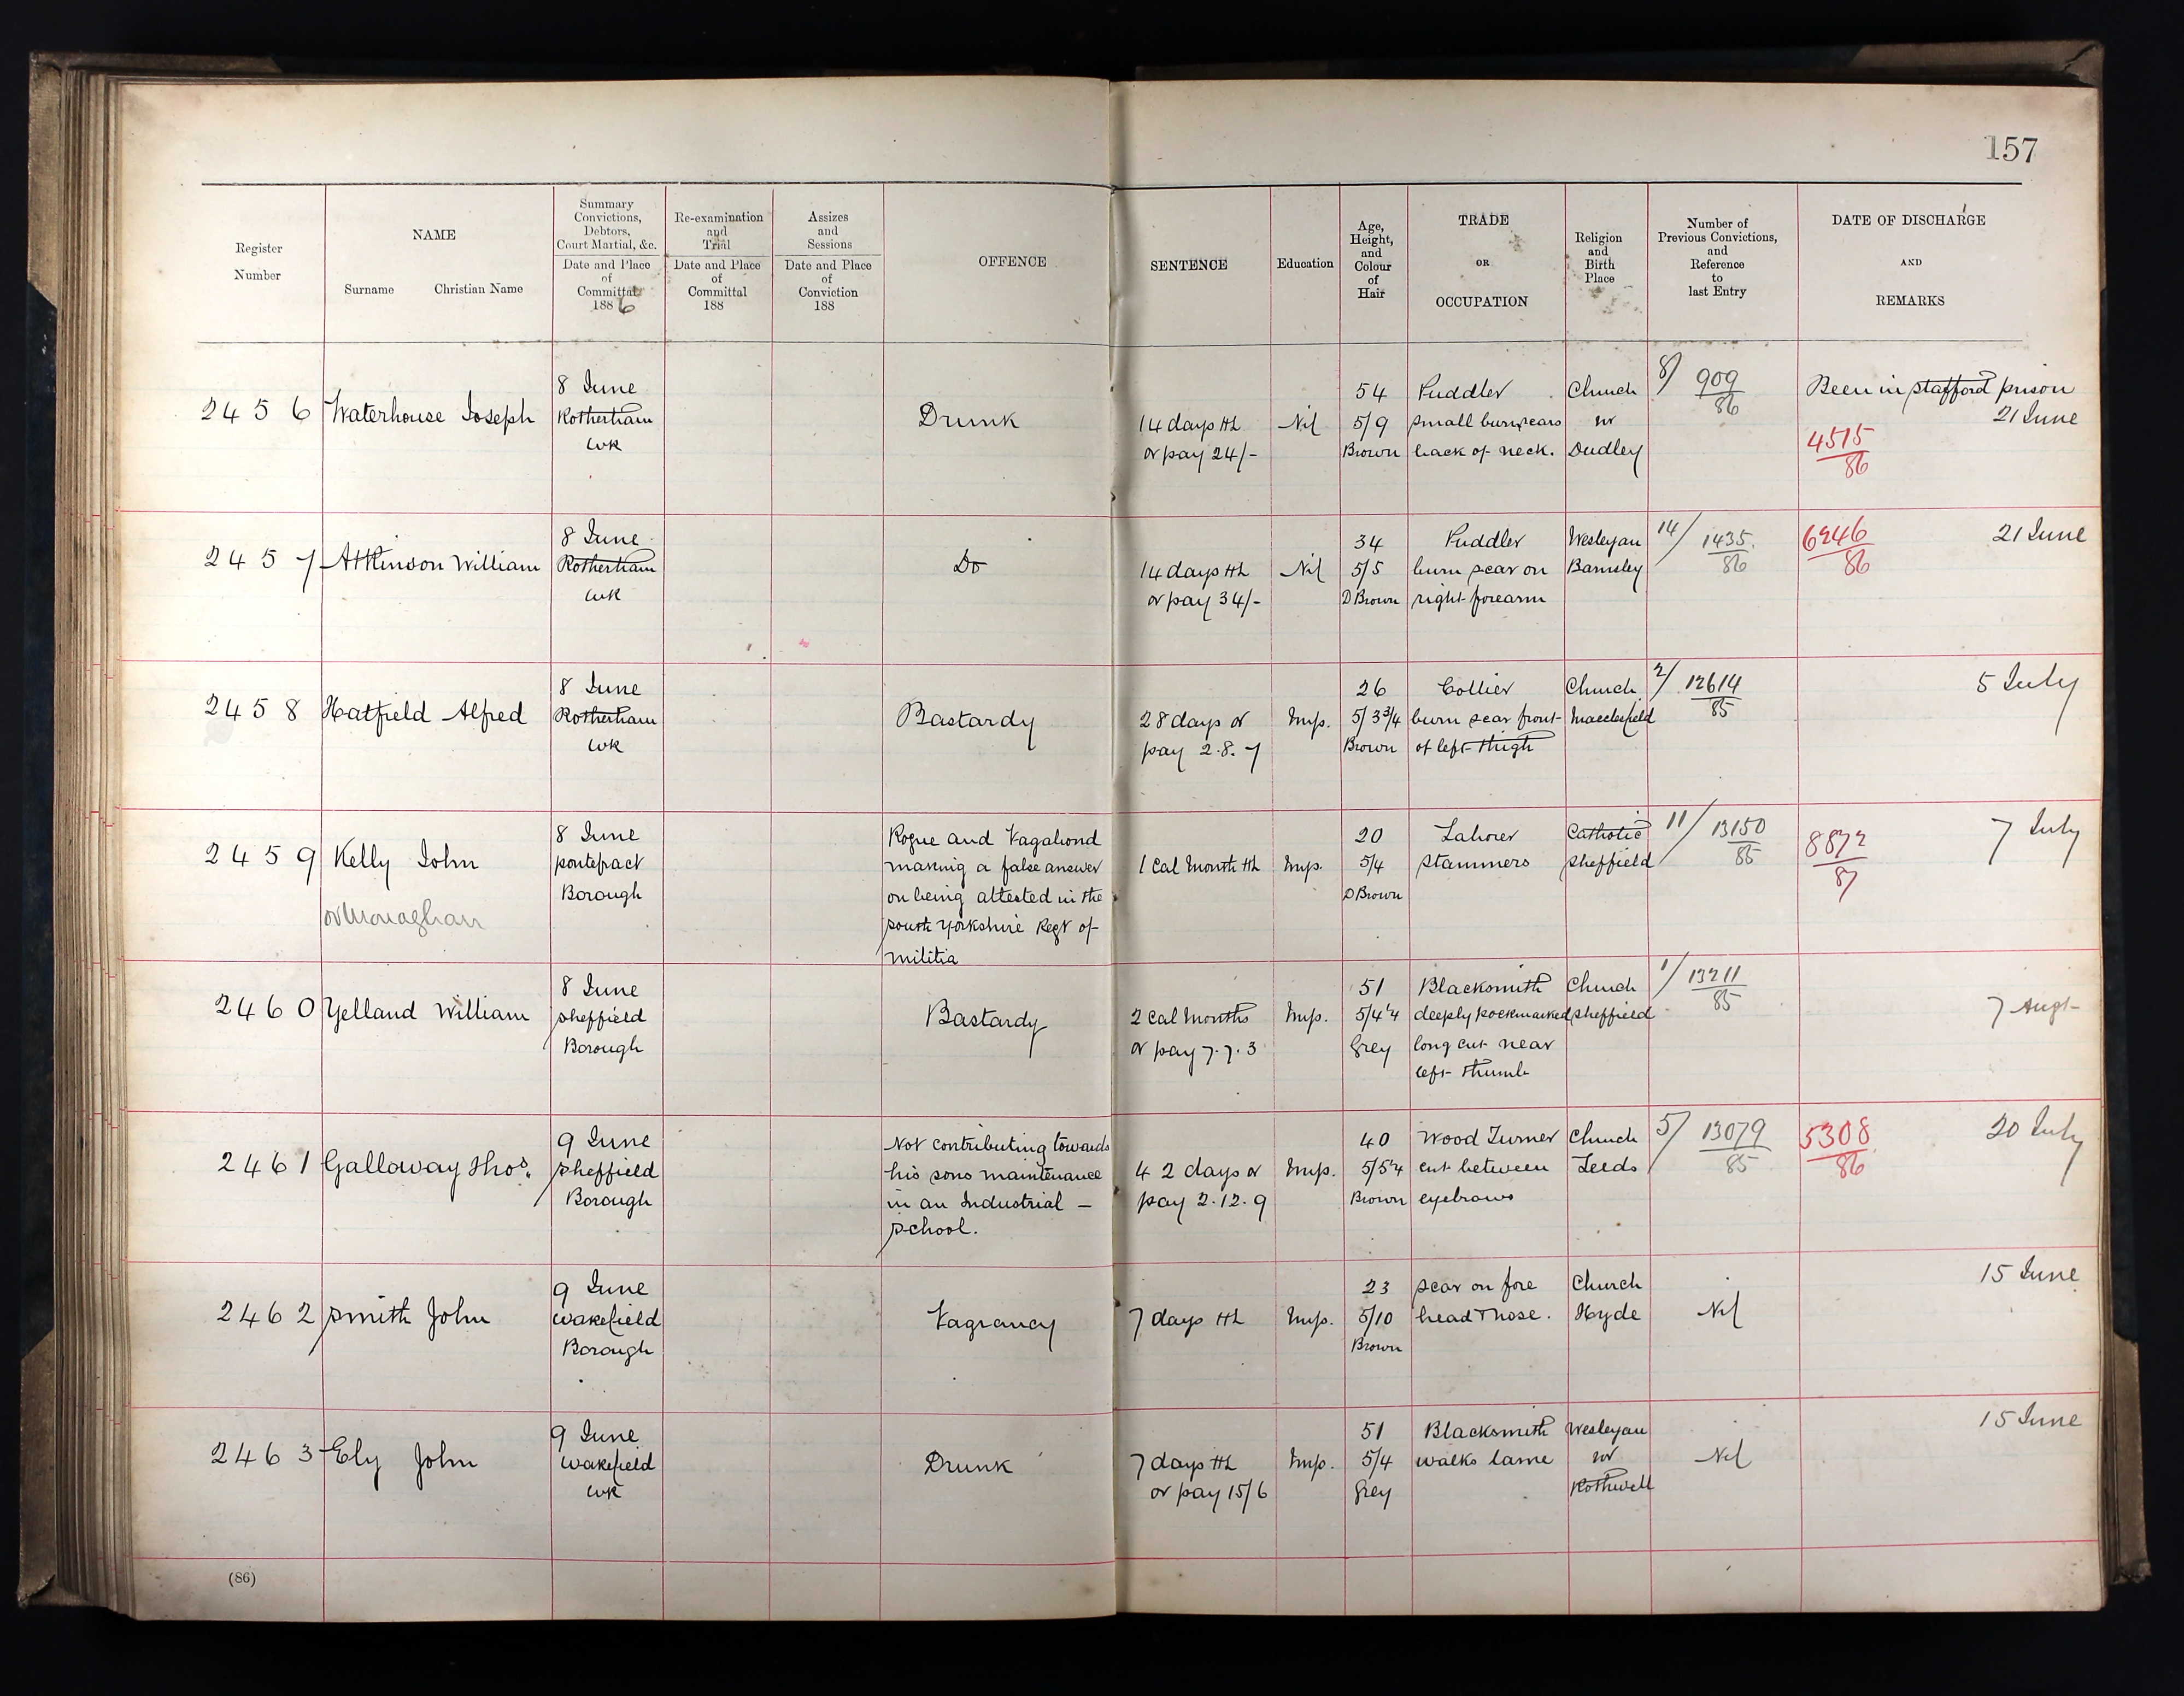 157
Register Number
NAME
Surname Christian Name
Summary Convictions, Debtors, Court Martial, &c.
Date and Place of Committal 1886
Re-examination and Trial
Date and Place of Committal 188
Assizes and Sessions
Date and Place of Conviction 188
OFFENCE
SENTENCE
Education
Age, Height, and Colour of Hair
TRADE OR OCCUPATION
Religion and Birth Place
Number of Previous Convictions, and Reference to last Entry
DATE OF DISCHARGE AND REMARKS
2456 Waterhouse Joseph
8 June
Rotherham
WR
Drunk
14 days HL
or pay 24/-
Nil
54
5/9
Brown
Puddler
small burn scars
back of neck.
Church
nr
Dudley
8/ 909
86
Been in Stafford prison
21 June
4515
86
2457 Atkinson William
8 June
Rotherham
WR
Do
14 days HL
or pay 34/-
Nil
34
5/5
D Brown
Puddler
burn scar on
right forearm
Wesleyan
Barnsley
14/ 1435
86
6246
86
21 June
2458 Hatfield Alfred
8 June
Rotherham
WR
Bastardy
28 days or
pay 2.8.7
Imp.
26
5/3¾
Brown
Collier
burn scar front
of left thigh
Church
Macclesfield
2/ 12614
85
5 July
2459 Kelly John
or Monaghan
8 June
Pontefract
Borough
Rogue and Vagabond
making a false answer
on being attested in the
South Yorkshire Regt of
militia
1 Cal Month HL
Imp.
20
5/4
D Brown
Laborer
Stammers
Catholic
Sheffield
11/ 13150
85
8872
87
7 July
2460 Yelland William
8 June
Sheffield
Borough
Bastardy
2 Cal Months
or pay 7.7.3
Imp.
51
5/4¼
Grey
Blacksmith
deeply pockmarked
long cut near
left thumb
Church
Sheffield
1/ 13211
85
7 Augt
2461 Galloway Thos.
9 June
Sheffield
Borough
Not contributing towards
his sons maintenance
in an Industrial —
School.
42 days or
pay 2.12.9
Imp.
40
5/5¼
Brown
Wood Turner
cut between
eyebrows
Church
Leeds
5/ 13079
85
5308
86
20 July
2462 Smith John
9 June
Wakefield
Borough
Vagrancy
7 days HL
Imp.
23
5/10
Brown
scar on fore
head & nose.
Church
Hyde
Nil
15 June
2463 Ely John
9 June
Wakefield
WR
Drunk
7 days HL
or pay 15/6
Imp.
51
5/4
Grey
Blacksmith
walks lame
Wesleyan
nr
Rothwell
Nil
15 June
(86)